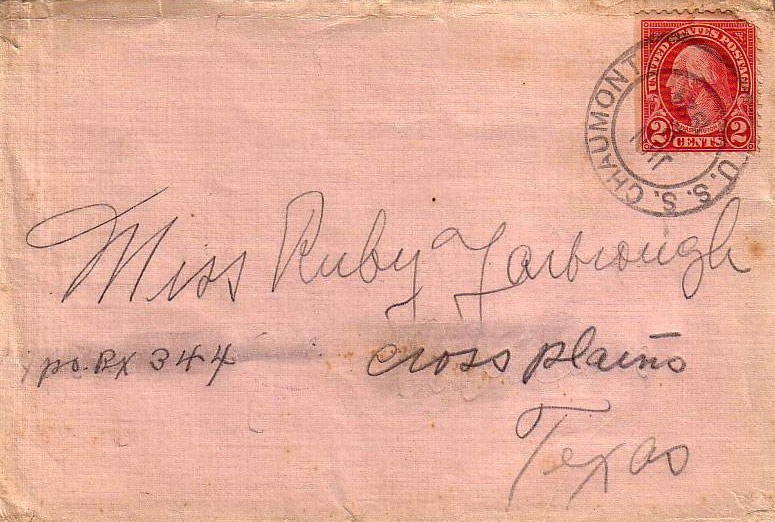 UNITED STATES POSTAGE
2 CENTS 2
U. S. S. CHAUMONT
Miss Ruby Yarbrough
po. Bx 344 Cross plains
Texas